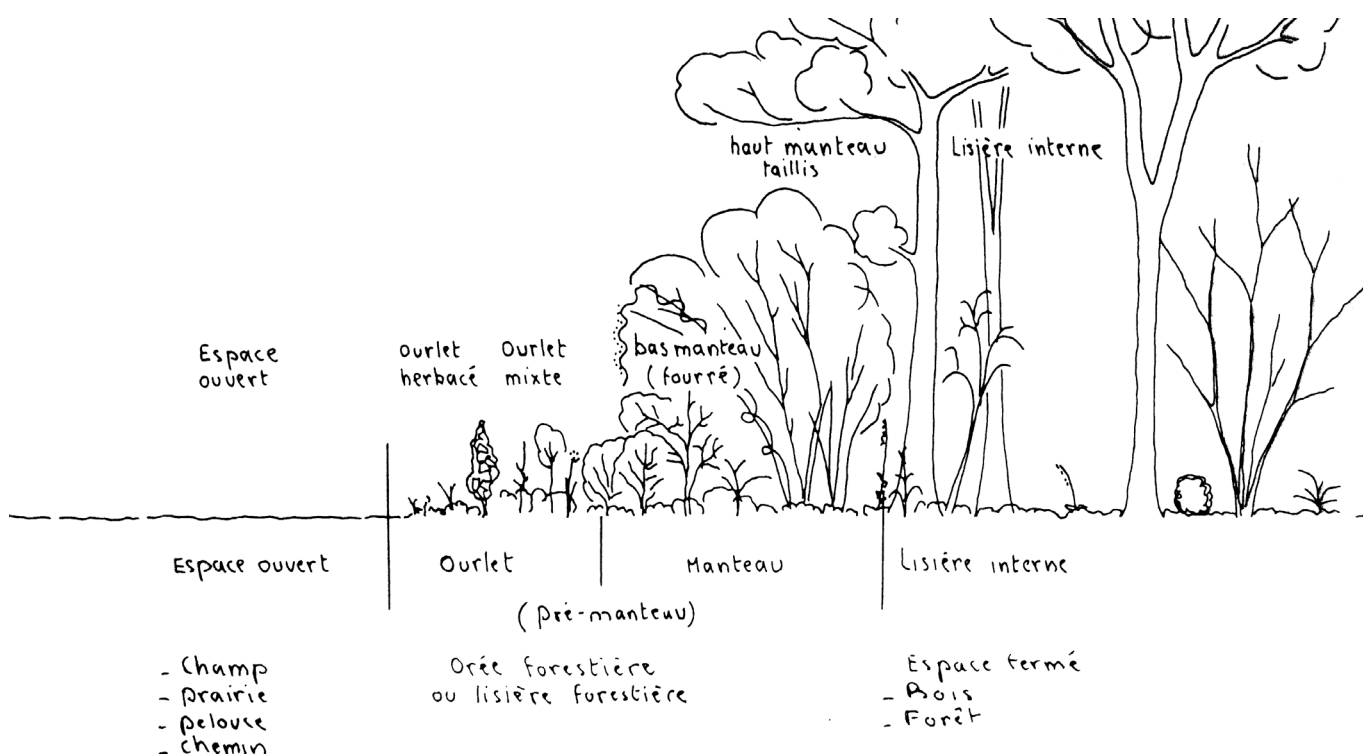 haut manteau
taillis
Lisière interne
Espace
ouvert
Ourlet
herbacé
Ourlet
mixte
bas manteau
(fourré)
Espace ouvert
Ourlet
Manteau
Lisière interne
(pré-manteau)
- Champ
- prairie
- pelouse
- chemin
Orée forestière
ou lisière forestière
Espace fermé
- Bois
- Forêt